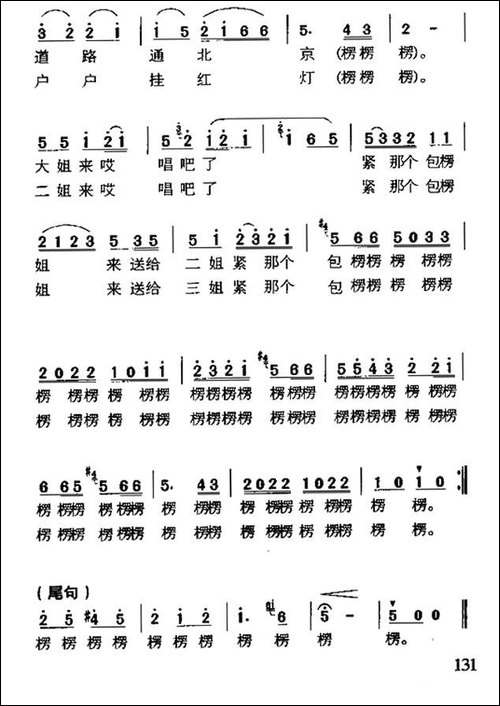 3 2 2 1 | 1 5 2 1 6 6 | 5. 4 3 | 2 -
道 路 通 北 京 (楞 楞 楞)。
户 户 挂 红 灯 (楞 楞 楞)。
5 5 i 2 i | 5 2 i 2 i | i 6 5 | 5 3 3 2 1 1
大 姐 来 哎 唱 吧 了 紧 那 个 包 楞
二 姐 来 哎 唱 吧 了 紧 那 个 包 楞
2 1 2 3 5 3 5 | 5 i 2 3 2 i | 5 6 6 5 0 3 3
姐 来 送 给 二 姐 紧 那 个 包 楞楞 楞 楞楞
姐 来 送 给 三 姐 紧 那 个 包 楞楞 楞 楞楞
2 0 2 2 1 0 1 1 | 2 3 2 1 5 6 6 | 5 5 4 3 2 2 1
楞 楞楞 楞 楞楞 楞楞楞楞 楞 楞楞 楞楞楞楞 楞 楞楞
楞 楞楞 楞 楞楞 楞楞楞楞 楞 楞楞 楞楞楞楞 楞 楞楞
6 6 5 5 6 6 | 5. 4 3 | 2 0 2 2 1 0 2 2 | 1 0 1 0
楞 楞楞 楞 楞楞 楞 楞楞 楞 楞楞 楞 楞楞 楞 楞。
楞 楞楞 楞 楞楞 楞 楞楞 楞 楞楞 楞 楞楞 楞 楞。
(尾句)
2 5 #4 5 | 2 1 2 | i. 6 | 5 - | 5 0 0
楞 楞 楞 楞 楞 楞 楞 楞 楞 楞 楞。
131